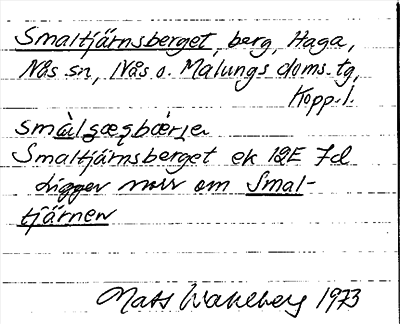 Smaltjärnsberget, berg, Haga,
Nås sn, Nås o. Malungs doms. tg,
Kopp. l.
Smaltjärnsberget ek 12E 7d
ligger norr om Smal-
tjärnen
Mats Wahlberg 1973